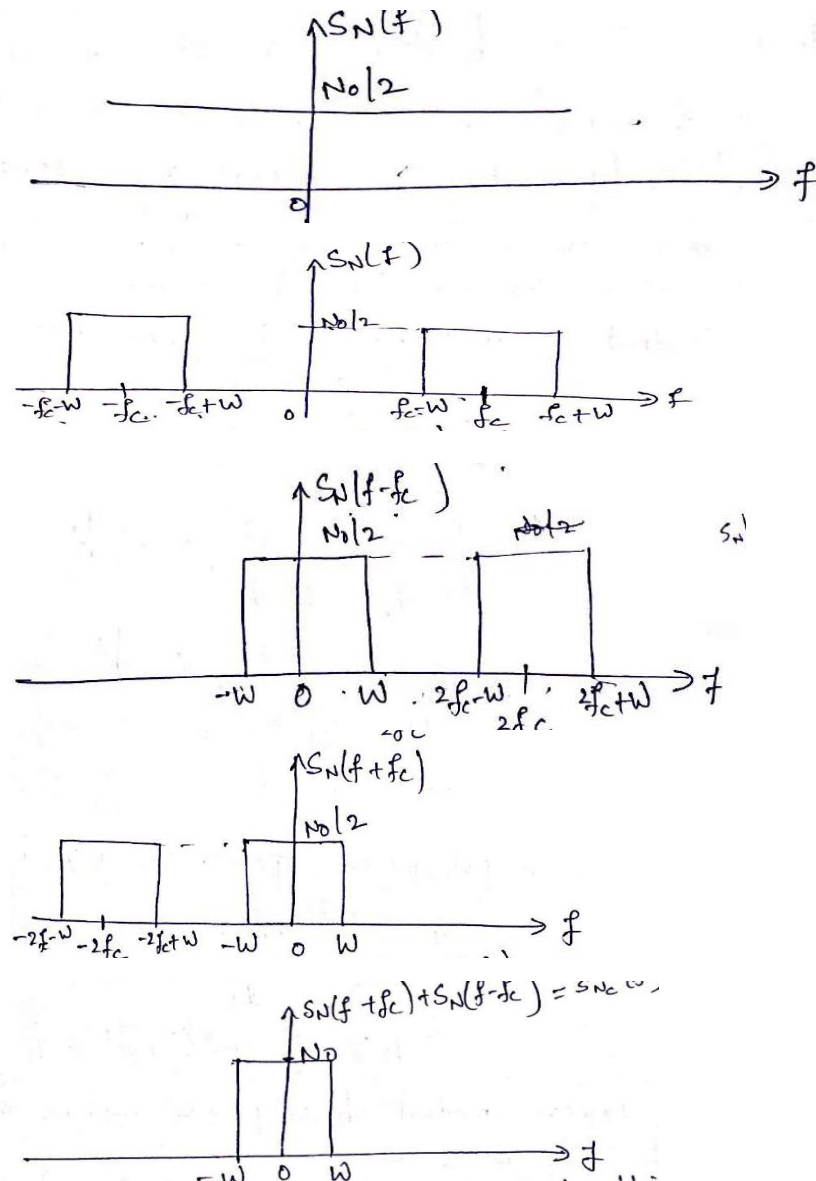 SN(f)
No/2
f
0
SN(f)
No/2
-fc-W -fc -fc+W 0 fc-W fc fc+W f
SN(f-fc)
No/2 No/2
SN
-W 0 W 2fc-W 2fc 2fc+W f
SN(f+fc)
No/2
-2f-W -2fc -2fc+W -W 0 W f
SN(f+fc)+SN(f-fc) = SNc
No
-W 0 W f